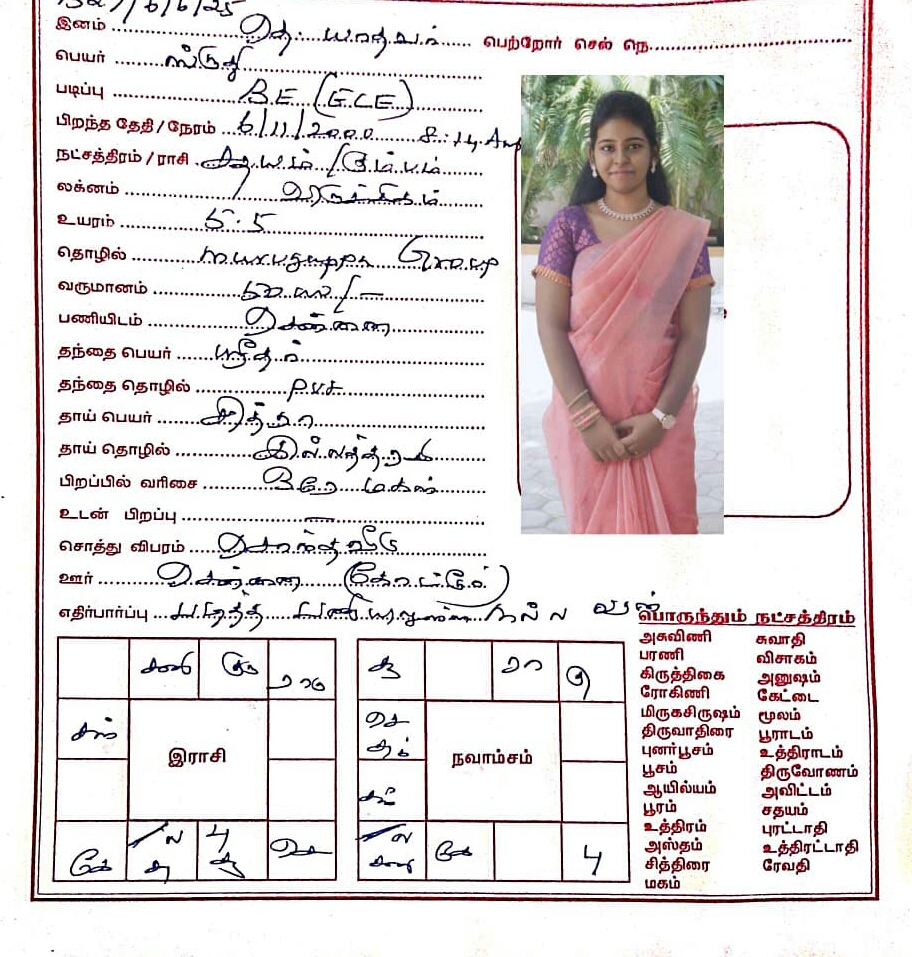 6/6/25
இனம் தெ. யாதவர் பெற்றோர் செல் நெ.
பெயர் ஸ்ருதி
படிப்பு B.E (ECE)
பிறந்த தேதி/நேரம் 6/11/2000 8:14 Am
நட்சத்திரம்/ராசி சதயம் / கும்பம்
லக்னம் விருச்சிகம்
உயரம் 5.5
தொழில்
வருமானம்
பணியிடம் சென்னை
தந்தை பெயர் ஸ்ரீதர்
தந்தை தொழில்
தாய் பெயர் சித்ரா
தாய் தொழில் இல்லத்தரசி
பிறப்பில் வரிசை ஒரே மகள்
உடன் பிறப்பு —
சொத்து விபரம் சொந்த வீடு
ஊர் சென்னை
எதிர்பார்ப்பு படித்த நல்ல வரன்
பொருந்தும் நட்சத்திரம்
அசுவிணி சுவாதி
பரணி விசாகம்
கிருத்திகை அனுஷம்
ரோகிணி கேட்டை
மிருகசிருஷம் மூலம்
திருவாதிரை பூராடம்
புனர்பூசம் உத்திராடம்
பூசம் திருவோணம்
ஆயில்யம் அவிட்டம்
பூரம் சதயம்
உத்திரம் புரட்டாதி
அஸ்தம் உத்திரட்டாதி
சித்திரை ரேவதி
மகம்
சனி குரு ரா
சந்
இராசி
கே ல சு பு செ
சு ரா கு
செ
நவாம்சம்
ல சனி கே பு